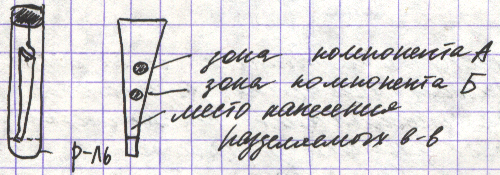 зона компонента А
зона компонента Б
место нанесения
разделяемых в-в
р-ль